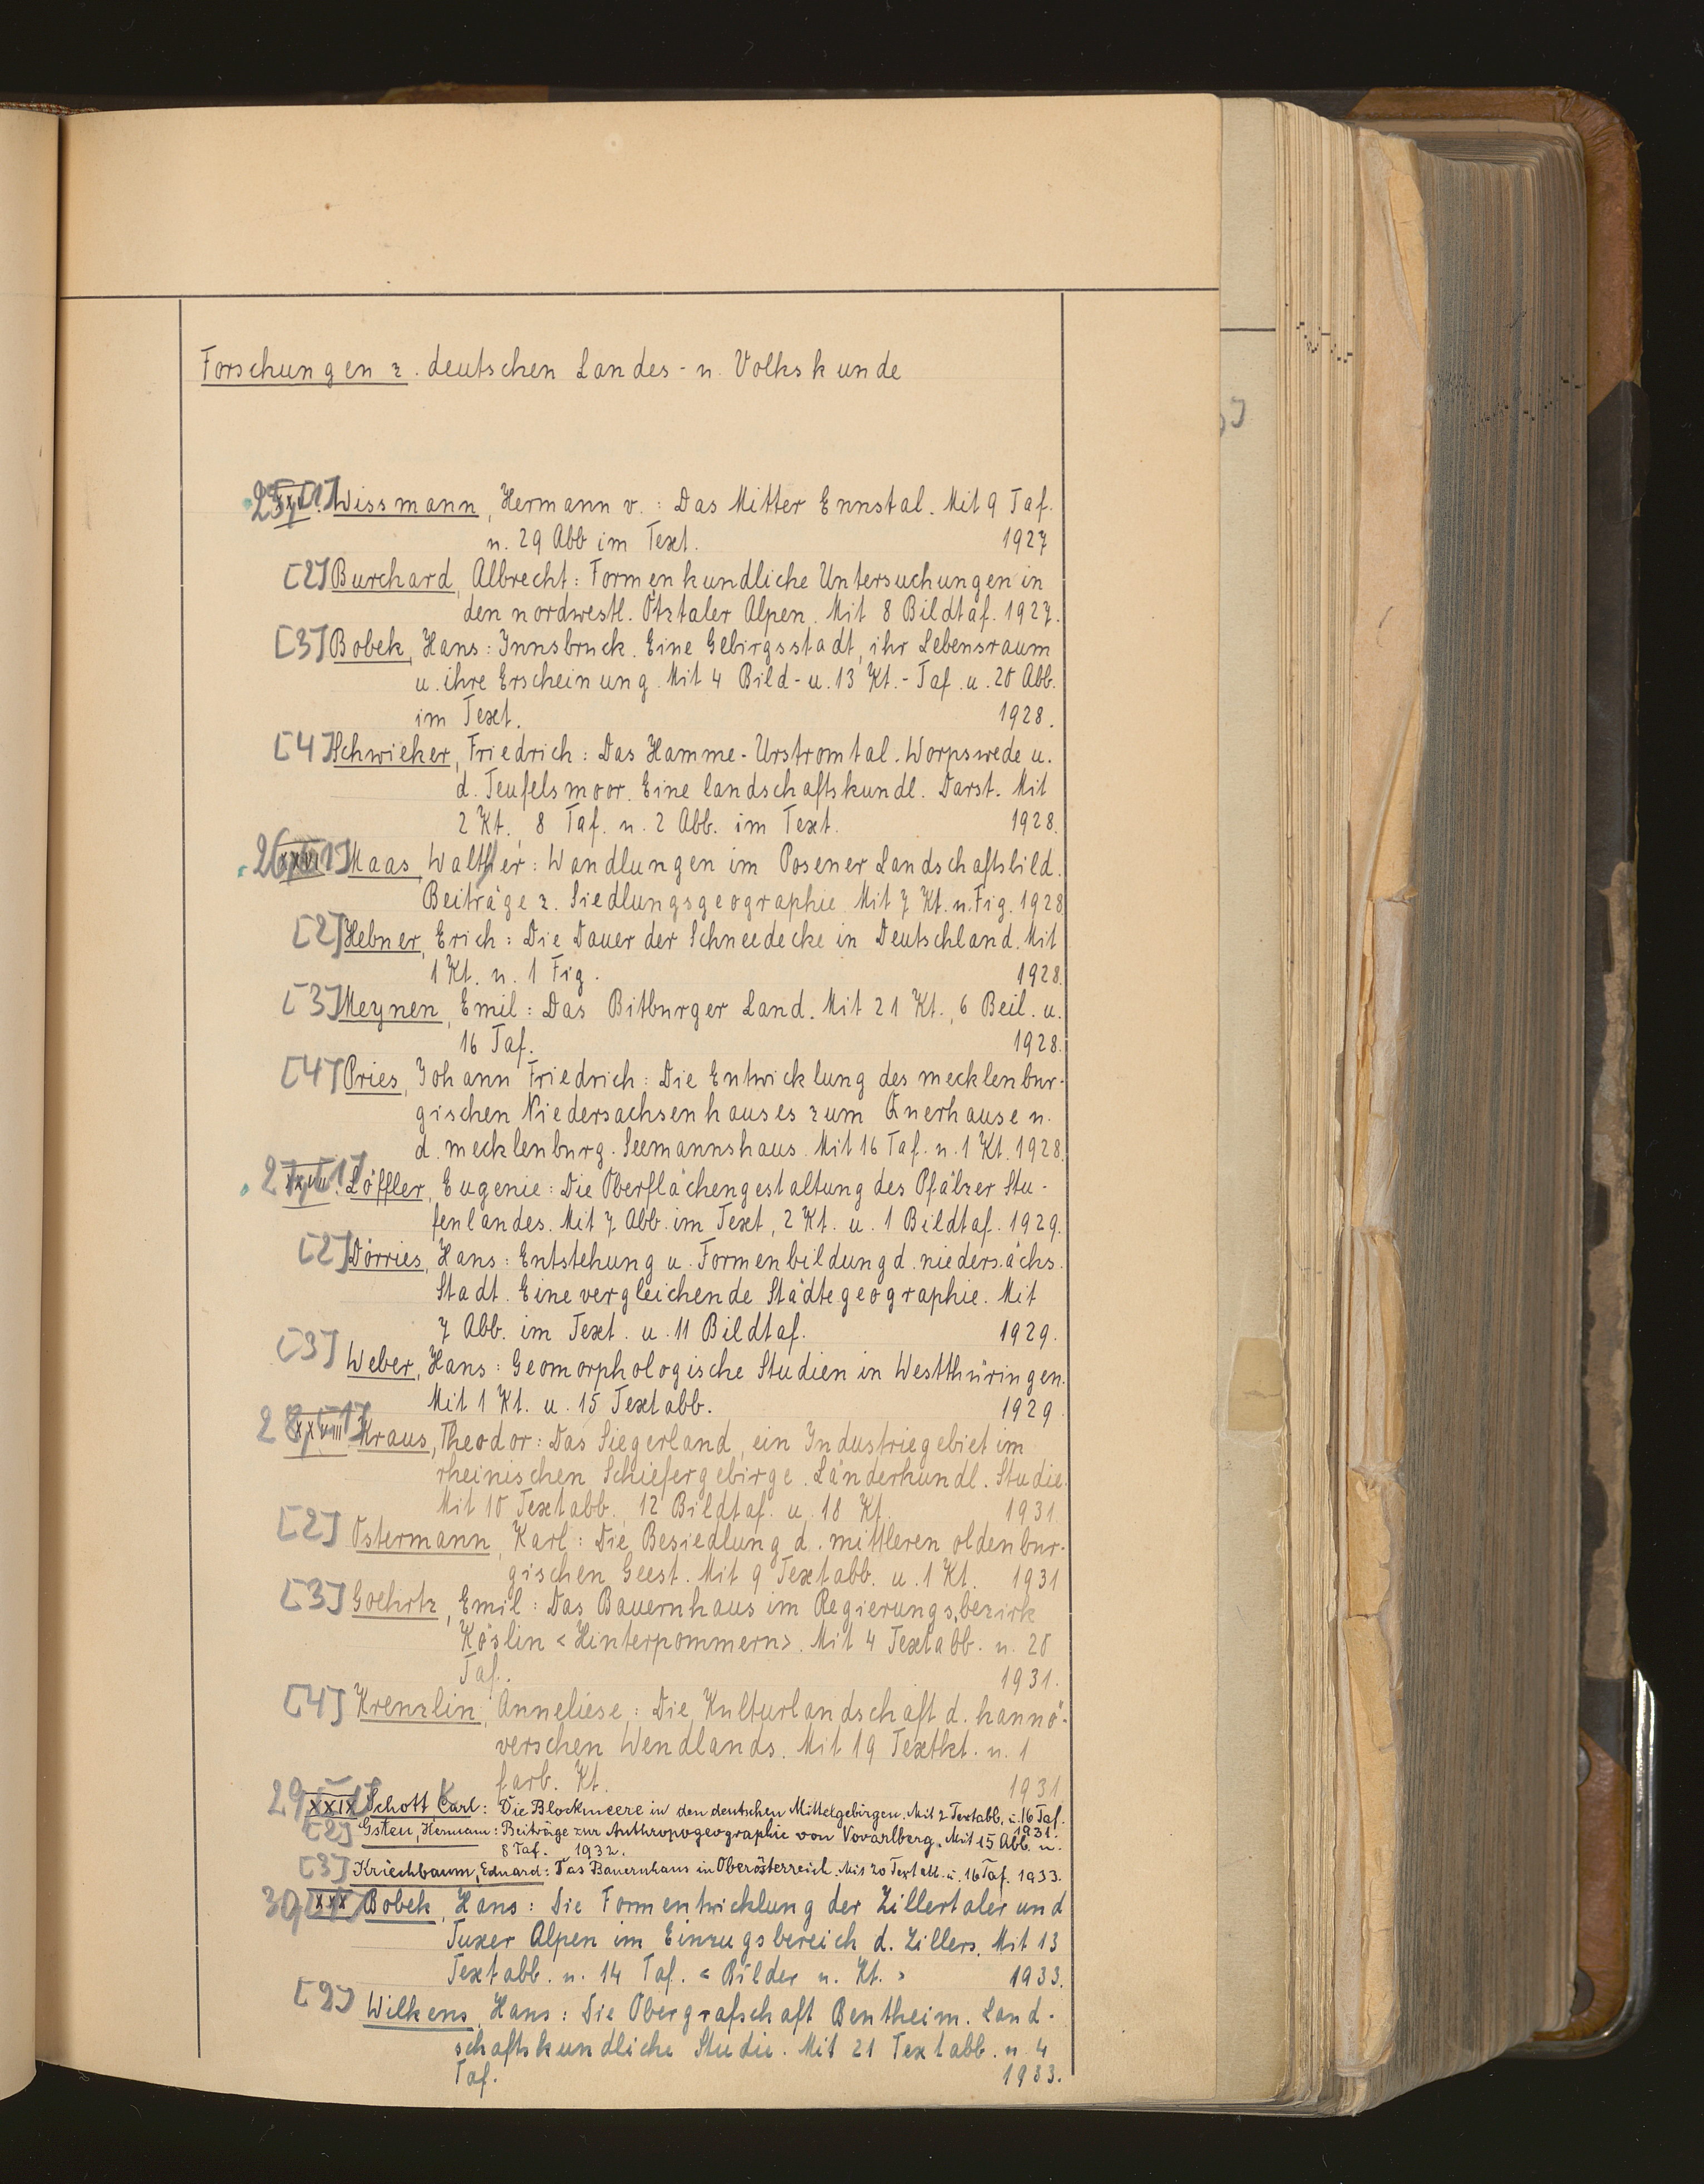 Forschungen z. deutschen Landes- u. Volkskunde
25,[1] Wissmann, Hermann v.: Das Mitter Ennstal. Mit 9 Taf.
u. 29 Abb im Text. 1927
[2] Burchard, Albrecht: Formenkundliche Untersuchungen in
den nordwestl. Ötztaler Alpen. Mit 8 Bildtaf. 1927.
[3] Bobek, Hans: Innsbruck. Eine Gebirgsstadt, ihr Lebensraum
u. ihre Erscheinung. Mit 4 Bild- u. 13 Kt.-Taf. u. 20 Abb.
im Text. 1928.
[4] Schwieker, Friedrich: Das Hamme-Urstromtal. Worpswede u.
d. Teufelsmoor. Eine landschaftskundl. Darst. Mit
2 Kt., 8 Taf. u. 2 Abb. im Text. 1928.
26,[1] XXVI Maas, Walther: Wandlungen im Posener Landschaftsbild.
Beiträge z. Siedlungsgeographie. Mit 7 Kt. u. Fig. 1928
[2] Hebner, Erich: Die Dauer der Schneedecke in Deutschland. Mit
1 Kt. u. 1 Fig. 1928.
[3] Meynen, Emil: Das Bitburger Land. Mit 21 Kt., 6 Beil. u.
16 Taf. 1928.
[4] Pries, Johann Friedrich: Die Entwicklung des mecklenbur-
gischen Niedersachsenhauses zum Querhause u.
d. mecklenburg. Seemannshaus. Mit 16 Taf. u. 1 Kt. 1928.
27,[1] Löffler, Eugenie: Die Oberflächengestaltung des Pfälzer Stu-
fenlandes. Mit 7 Abb. im Text, 2 Kt. u. 1 Bildtaf. 1929.
[2] Dörries, Hans: Entstehung u. Formenbildung d. niedersächs.
Stadt. Eine vergleichende Städtegeographie. Mit
7 Abb. im Text. u. 11 Bildtaf. 1929.
[3] Weber, Hans: Geomorphologische Studien in Westthüringen.
Mit 1 Kt. u. 15 Textabb. 1929.
28,[1] XXVIII Kraus, Theodor: Das Siegerland, ein Industriegebiet im
rheinischen Schiefergebirge. Länderkundl. Studie.
Mit 10 Textabb., 12 Bildtaf. u. 18 Kt. 1931.
[2] Ostermann, Karl: Die Besiedlung d. mittleren oldenbur-
gischen Geest. Mit 9 Textabb. u. 1 Kt. 1931
[3] Goehrtz, Emil: Das Bauernhaus im Regierungsbezirk
Köslin <Hinterpommern>. Mit 4 Textabb. u. 20
Taf. 1931.
[4] Krenzlin, Anneliese: Die Kulturlandschaft d. hannö-
verschen Wendlands. Mit 19 Textkt. u. 1
farb. Kt. 1931.
29,[1] XXIX Schott, Carl: Die Blockmeere in den deutschen Mittelgebirgen. Mit 2 Textabb. u. 16 Taf.
1931.
[2] Gsteu, Hermann: Beiträge zur Anthropogeographie von Vorarlberg. Mit 15 Abb. u.
8 Taf. 1932.
[3] Kriechbaum, Eduard: Das Bauernhaus in Oberösterreich. Mit 20 Textabb. u. 16 Taf. 1933.
30,[1] XXX Bobek, Hans: Die Formentwicklung der Zillertaler und
Tuxer Alpen im Einzugsbereich d. Zillers. Mit 13
Textabb. u. 14 Taf. <Bilder u. Kt.> 1933.
[2] Wilkens, Hans: Die Obergrafschaft Bentheim. Land-
schaftskundliche Studie. Mit 21 Textabb. u. 4
Taf. 1933.